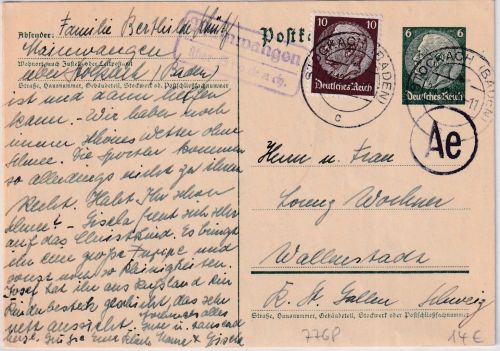 Absender: Familie Berthold
Mainwangen
Wohnort, auch Zustell- oder Leitpostamt
über Stockach (Baden)
Straße, Hausnummer, Gebäudeteil, Stockwerk od. Postschließfachnummer
ist und dann
kann. Wir haben noch
immer schönes Wetter ohne
Schnee. Die Sportler kommen
so allerdings nicht zu ihrem
Recht. Habt Ihr schon
Schnee? - Gisela freut sich sehr
auf das Christkind. Es bringt
ihr eine große Puppe und
sonst noch so Kleinigkeiten.
Josef hat ihr aus Russland ein
Kinderbesteck geschickt, das sehr
nett aussieht.
Grüße
Gisela
Postkarte
10
10
Deutsches Reich
STOCKACH (BADEN)
c
6
6
Deutsches Reich
STOCKACH (BADEN)
Ae
Herrn u. Frau
Lorenz
Wallenstadt
K. St. Gallen Schweiz
Straße, Hausnummer, Gebäudeteil, Stockwerk oder Postschließfachnummer
776P
14 €